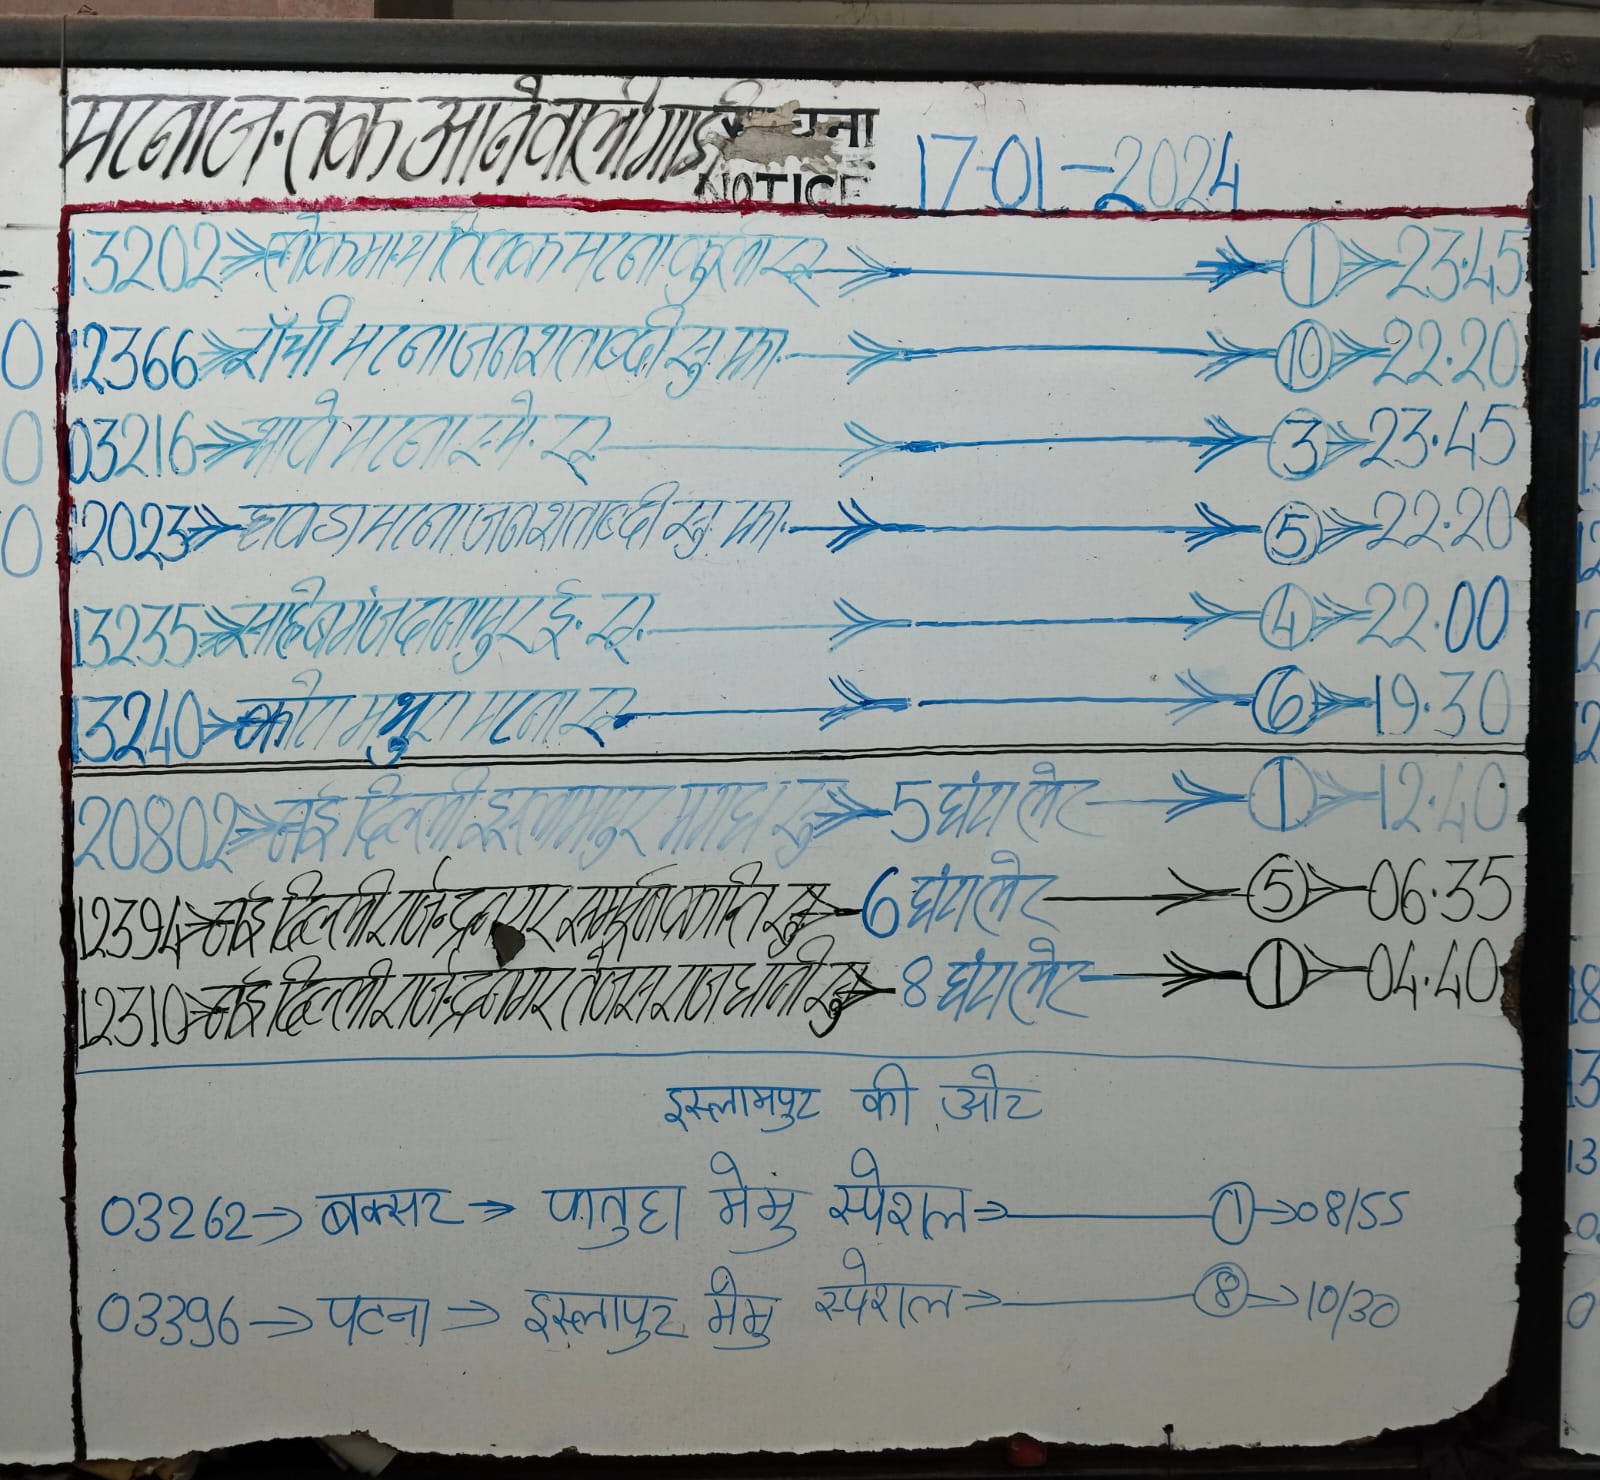 पटना ज. तक आनेवाली गाड़ी
NOTICE 17-01-2024
13202 लोकमान्य तिलक पटना कुर्ला एक्स 1 23.45
12366 राँची पटना जनशताब्दी सु. फा. 10 22.20
03216 पटना स्पे. 3 23.45
12023 हावडा पटना जनशताब्दी सु. फा. 5 22.20
13235 साहेबगंज दानापुर ई. एक्स. 4 22.00
13240 कोटा मथुरा पटना एक्स 6 19.30
20802 नई दिल्ली इस्लामपुर मगध सु 5 घंटा लेट 1 12.40
12394 नई दिल्ली राजेन्द्रनगर सम्पूर्ण क्रान्ति सु 6 घंटा लेट 5 06.35
12310 नई दिल्ली राजेन्द्रनगर तेजस राजधानी सु 8 घंटा लेट 1 04.40
इस्लामपुर की ओर
03262 → बक्सर → फतुहा मेमु स्पेशल → 1 → 08/55
03396 → पटना → इस्लापुर मेमु स्पेशल → 8 → 10/30